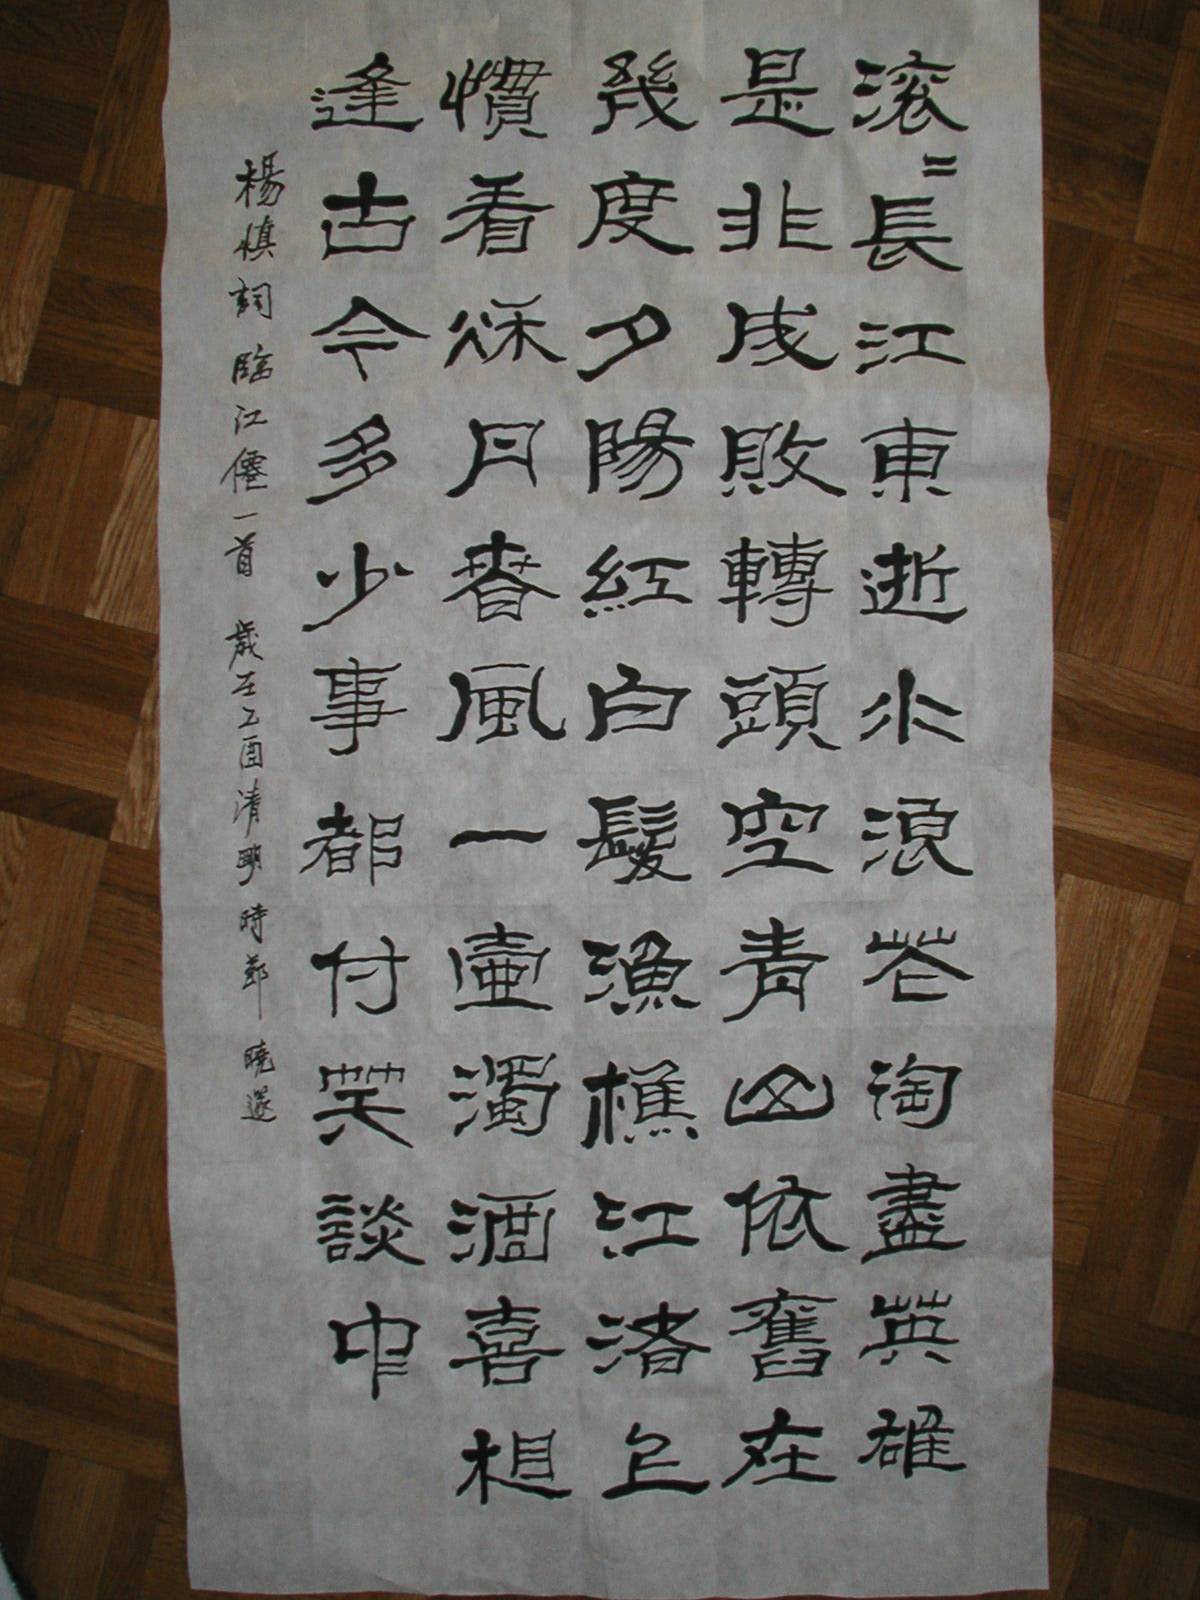 滚〻長江東逝水浪花淘盡英雄
是非成敗轉頭空青山依舊在
幾度夕陽紅白髮漁樵江渚上
慣看秌月春風一壺濁酒喜相
逢古今多少事都付笑談中
楊慎詞臨江僊一首 歲在乙酉清明時鄭曉遂